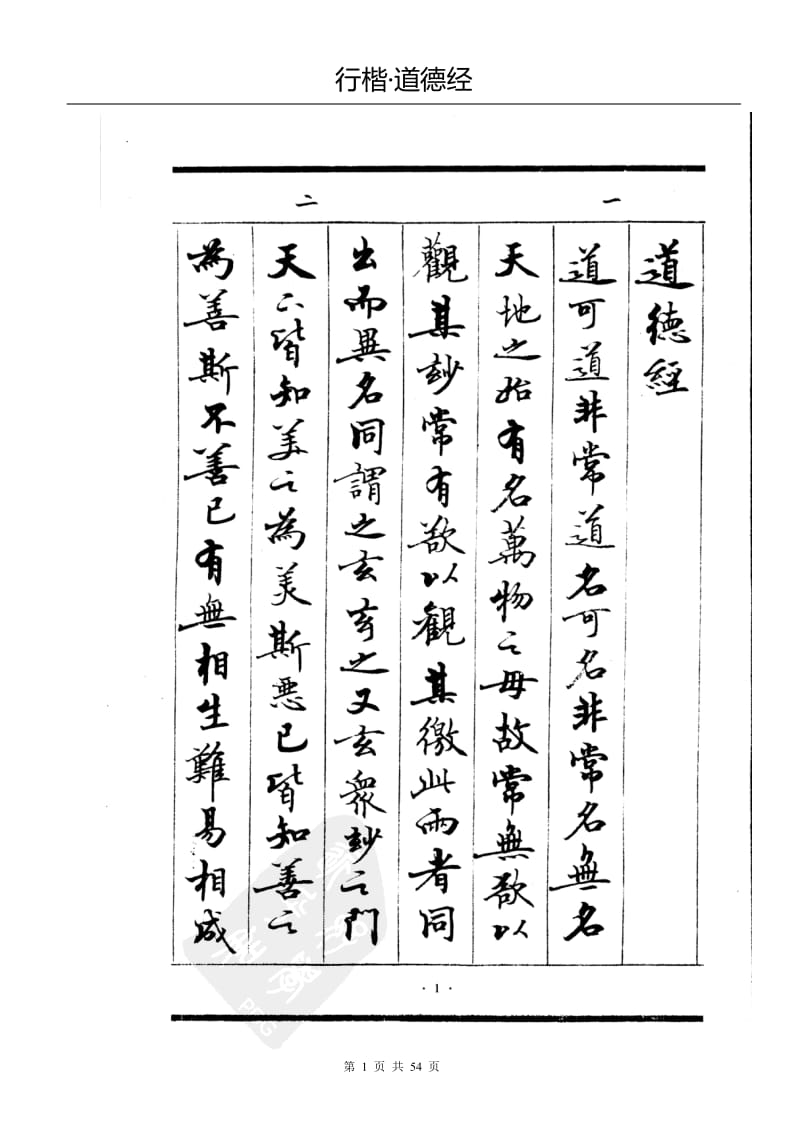 行楷·道德经
一
二
道德經
道可道非常道名可名非常名無名
天地之始有名萬物之母故常無欲以
觀其玅常有欲以觀其徼此兩者同
出而異名同謂之玄玄之又玄衆玅之門
天下皆知美之為美斯惡已皆知善之
為善斯不善已有無相生難易相成
·1·
第 1 页 共 54 页